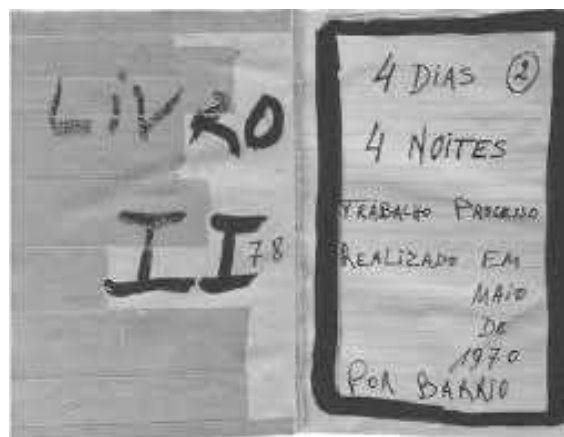 LiVRO
II
78
4 DIAS 2
4 NOITES
TRABALHO PROCESSO
REALIZADO EM
MAIO
DE
1970
POR BARRIO